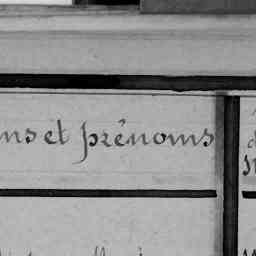 ns et prénoms